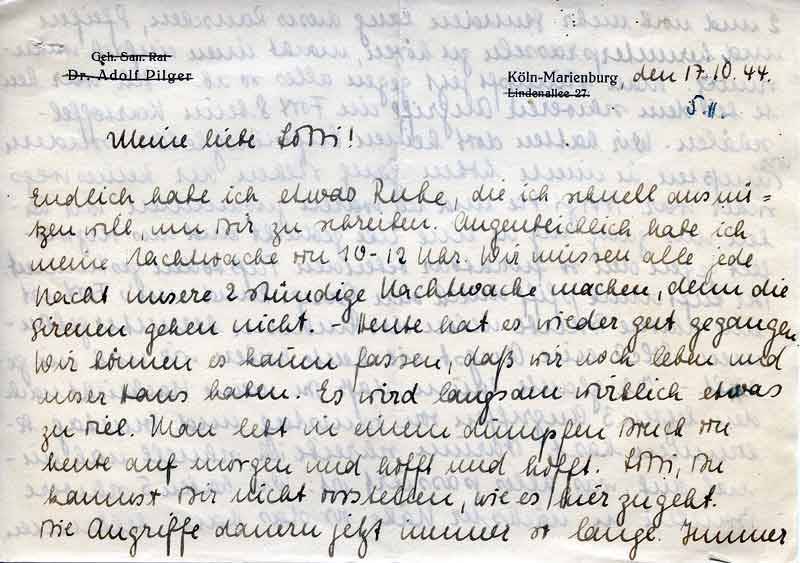 Geh. San. Rat
Dr. Adolf Pilger
Köln-Marienburg, den 17.10.44.
Lindenallee 27.
5.11.
Meine liebe Lotti!
Endlich habe ich etwas Ruhe, die ich schnell ausnut=
zen will, um Dir zu schreiben. Augenblicklich habe ich
meine Nachtwache von 10-12 Uhr. Wir müssen alle jede
Nacht unsere 2 stündige Nachtwache machen, denn die
Sirenen gehen nicht. - Heute hat es wieder gut gegangen
Wir können es kaum fassen, daß wir noch leben und
unser Haus haben. Es wird langsam wirklich etwas
zu viel. Man lebt in einem dumpfen Druck von
heute auf morgen und hofft und hofft. Lotti, Du
kannst Dir nicht vorstellen, wie es hier zugeht.
Die Angriffe dauern jetzt immer so lange. Immer